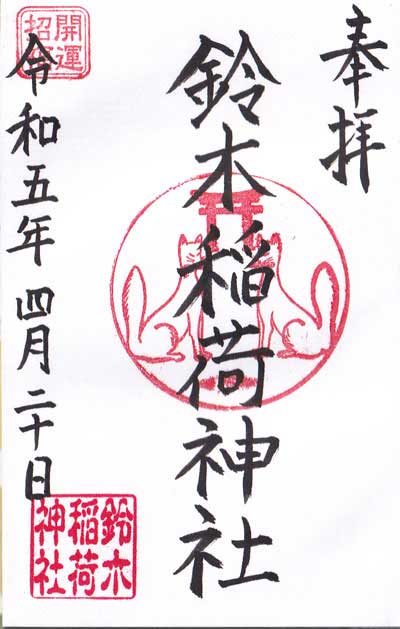 奉拝
鈴木稲荷神社
令和五年四月二十日
開運
招福
鈴木
稲荷
神社